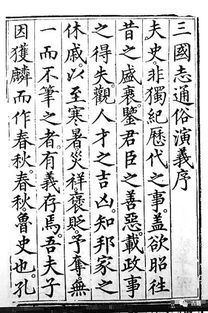 三國志通俗演義序
夫史非獨紀歷代之事蓋欲昭往
昔之盛衰鑒君臣之善惡載政事
之得失觀人才之吉凶知邦家之
休戚以至寒暑災祥褒貶予奪無
一而不筆之者有義存焉吾夫子
因獲麟而作春秋春秋魯史也孔